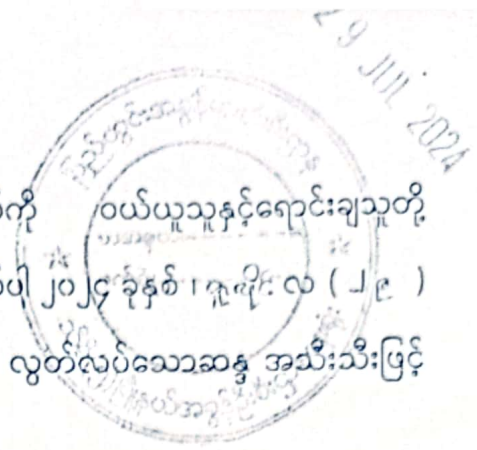 29 JUL 2024
ပြည်တွင်းအခွန်များဦးစီးဌာန
ကို ဝယ်ယူသူနှင့်ရောင်းချသူတို့
ပါ ၂၀၂၄ ခုနှစ် ၊ ဇူလိုင် လ ( ၂၉ )
လွတ်လပ်သောဆန္ဒ အသီးသီးဖြင့်